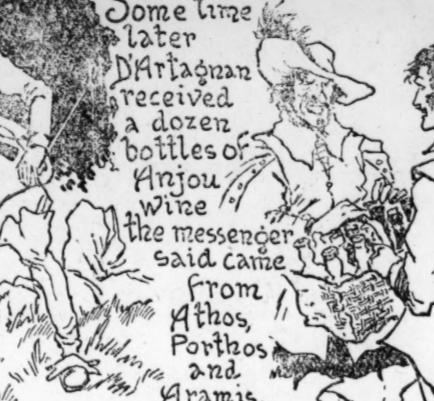 Some time
later
D'Artagnan
received
a dozen
bottles of
Anjou
wine
the messenger
said came
from
Athos,
Porthos
and
Aramis